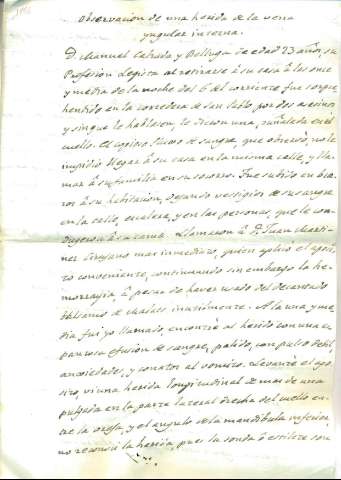 Observacion de una herida de la vena
yugular interna.
D. Manuel Calzada y Belluga de edad 23 años, su
Profesion Legista al retirarse á su casa á las once
y media de la noche del 6 del corriente fue sorpre
hendido en la corredera de San Pablo por dos asesinos
y sin que le hablasen, le dieron una puñalada en el
cuello. El copioso fluxo de sangre, que observó, no le
impidió llegar á su casa en la misma calle, y lla-
mar á su familia en su socorro. Fue subido en bra
zos á su habitacion, dejando vestigios de su sangre
en la calle, escalera, y en las personas, que le con
dugeron á su cama. Llamaron á D. Juan Marti-
nez Cirujano mas inmediato, quien aplicó el aposi
to conveniente, continuando sin embargo la he-
morragia á pesar de haver usado del decantado
balsamo de Malats inutilmente. A la una y me
dia fui yo llamado, encontré al herido con una es
pantosa efusion de sangre, palido, con pulso debil,
ansiedades, y conatos al vomito. Levanté el apo
sito, vi una herida longitudinal de mas de una
pulgada en la parte lateral derecha del cuello en-
tre la oreja y el angulo de la mandibula inferior,
no reconocí la herida, pues la sonda ó estilete son